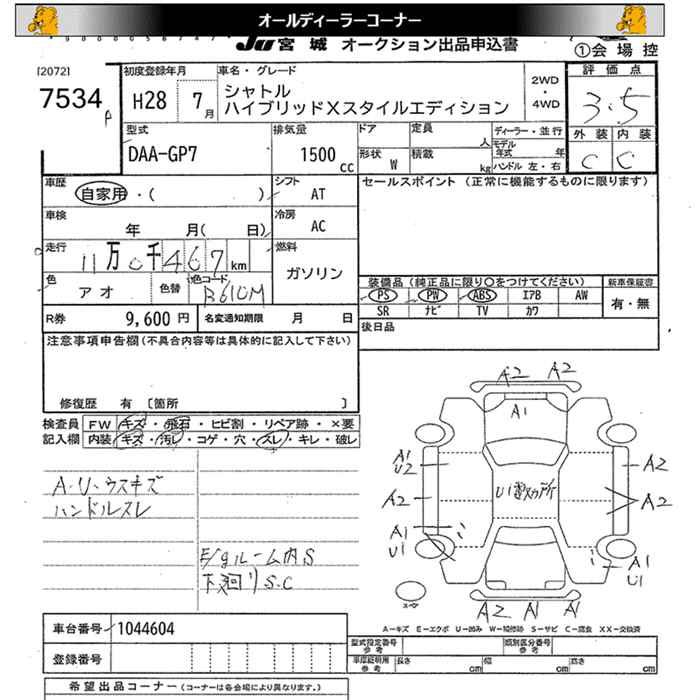 オールディーラーコーナー
JU 宮城 オークション出品申込書
①会場控
[2072]
7534
初度登録年月
H28 7月
車名・グレード
シャトル
ハイブリッドXスタイルエディション
2WD
・
4WD
評価点
3.5
外装 内装
C C
型式
DAA-GP7
排気量
1500cc
ドア 定員 人
形状 W 積載 kg
ディーラー・並行
モデル年式 年
ハンドル 左・右
車歴
自家用・( )
シフト
AT
セールスポイント (正常に機能するものに限ります)
車検
年 月( 日)
冷房
AC
走行
11万0千467km
燃料
ガソリン
色
アオ
色替
色コード
B610M
装備品(純正品に限り○をつけてください)
新車保証書
PS PW ABS エアB AW
有・無
SR ナビ TV カワ
R券 9,600円
名変通知期限 月 日
後日品
注意事項申告欄(不具合内容等は具体的に記入して下さい)
修復歴 有 〔箇所 〕
検査員 FW キズ・飛石・ヒビ割・リペア跡・×要
記入欄 内装 キズ・汚レ・コゲ・穴・スレ・キレ・破レ
A2 A2
A1
A1
U2
A2
A・U・ウスキズ
ハンドルスレ
A2
A2
A1
U1
A1
U1
E/gルーム内S
下廻りS.C
スペア
A2 A1 A1
A−キズ E−エクボ U−凹み W−補修跡 S−サビ C−腐食 XX−交換済
車台番号 1044604
登録番号
型式指定番号 参考
類別区分番号 参考
車庫証明用 参考 長さ cm 幅 cm 高さ cm
希望出品コーナー(コーナーは各会場により異なります。)